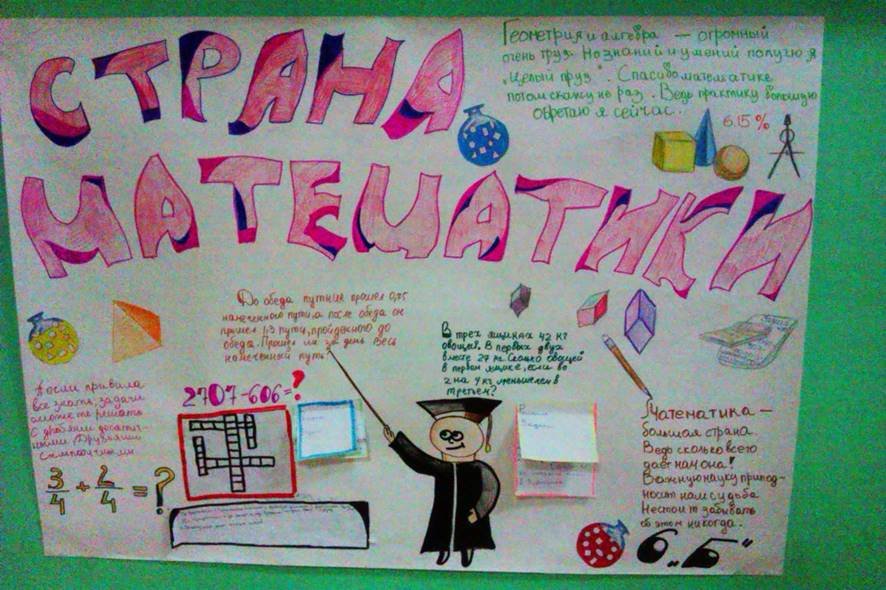 СТРАНА
МАТЕМАТИКИ
Геометрия и алгебра — огромный
очень груз. Но знаний и умений получю я
„Целый груз“. Спасибо математике
потом скажу не раз. Ведь практику
я сейчас.
6.15 %
До обеда путник прошел 0,75
намеченного пути, а после обеда он
прошел 1/3 пути, пройденного до
обеда. Прошел ли за день весь
намеченный путь?
В трех ящиках 42 кг
овощей. В первых двух
вместе 27 кг. Сколько овощей
в первом ящике, если во
2 на 4 кг меньше чем в
третьем?
если правила
все знать, задачи
решать
С дробями
Друзьями
2707-606=?
3/4 + 2/4 = ?
Математика —
большая страна.
Ведь сколько всего
дает нам она!
Важную науку препод-
носит нам судьба
Не стоит забывать
об этом никогда.
6 „Б“